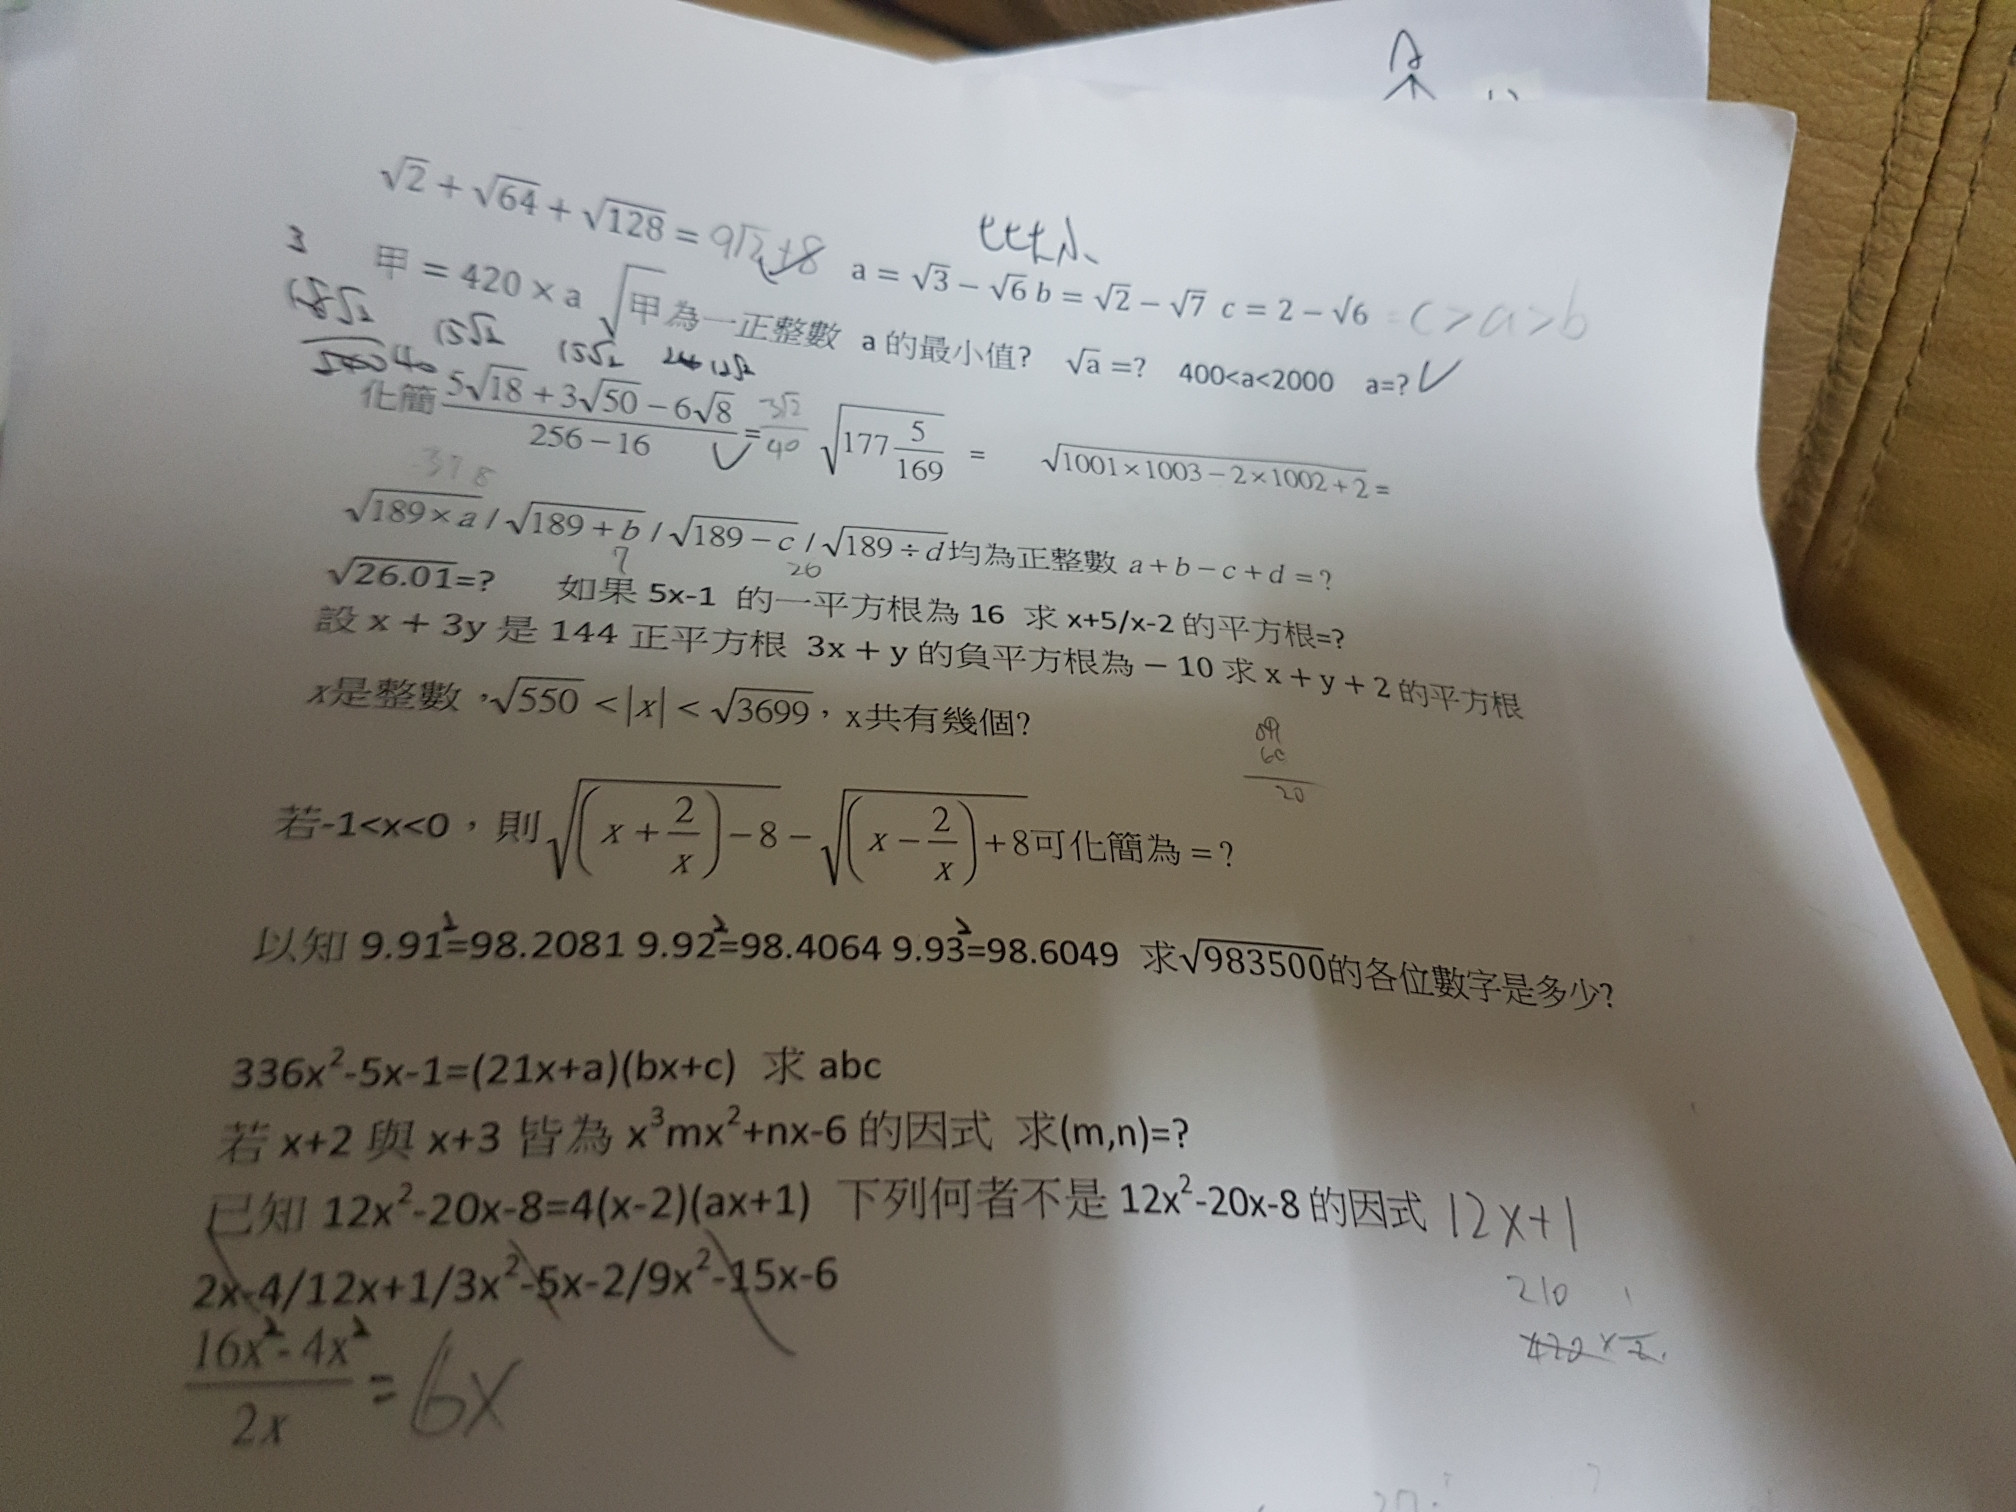 √2 + √64 + √128 = 9√2+8 比大小
a = √3 − √6 b = √2 − √7 c = 2 − √6 = c>a>b
3
甲 = 420 × a √甲為一正整數 a 的最小值? √a =? 400<a<2000 a=?
18√2 15√2 15√2 12√2
40
化簡 (5√18 + 3√50 − 6√8)/(256 − 16) = 3√2/40 √(177 5/169) = √(1001×1003 − 2×1002 + 2) =
378
√(189 × a) / √(189 + b) / √(189 − c) / √(189 ÷ d) 均為正整數 a + b − c + d = ?
7 20
√26.01=? 如果 5x-1 的一平方根為 16 求 x+5/x-2 的平方根=?
設 x + 3y 是 144 正平方根 3x + y 的負平方根為 − 10 求 x + y + 2 的平方根
x是整數，√550 < |x| < √3699，x共有幾個?
20
若-1<x<0，則 √((x + 2/x) − 8) − √((x − 2/x) + 8) 可化簡為 = ?
以知 9.91²=98.2081 9.92²=98.4064 9.93²=98.6049 求√983500的各位數字是多少?
336x²-5x-1=(21x+a)(bx+c) 求 abc
若 x+2 與 x+3 皆為 x³mx²+nx-6 的因式 求(m,n)=?
已知 12x²-20x-8=4(x-2)(ax+1) 下列何者不是 12x²-20x-8 的因式 12x+1
2x-4/12x+1/3x²-5x-2/9x²-15x-6
210
(16x² - 4x²)/2x = 6x